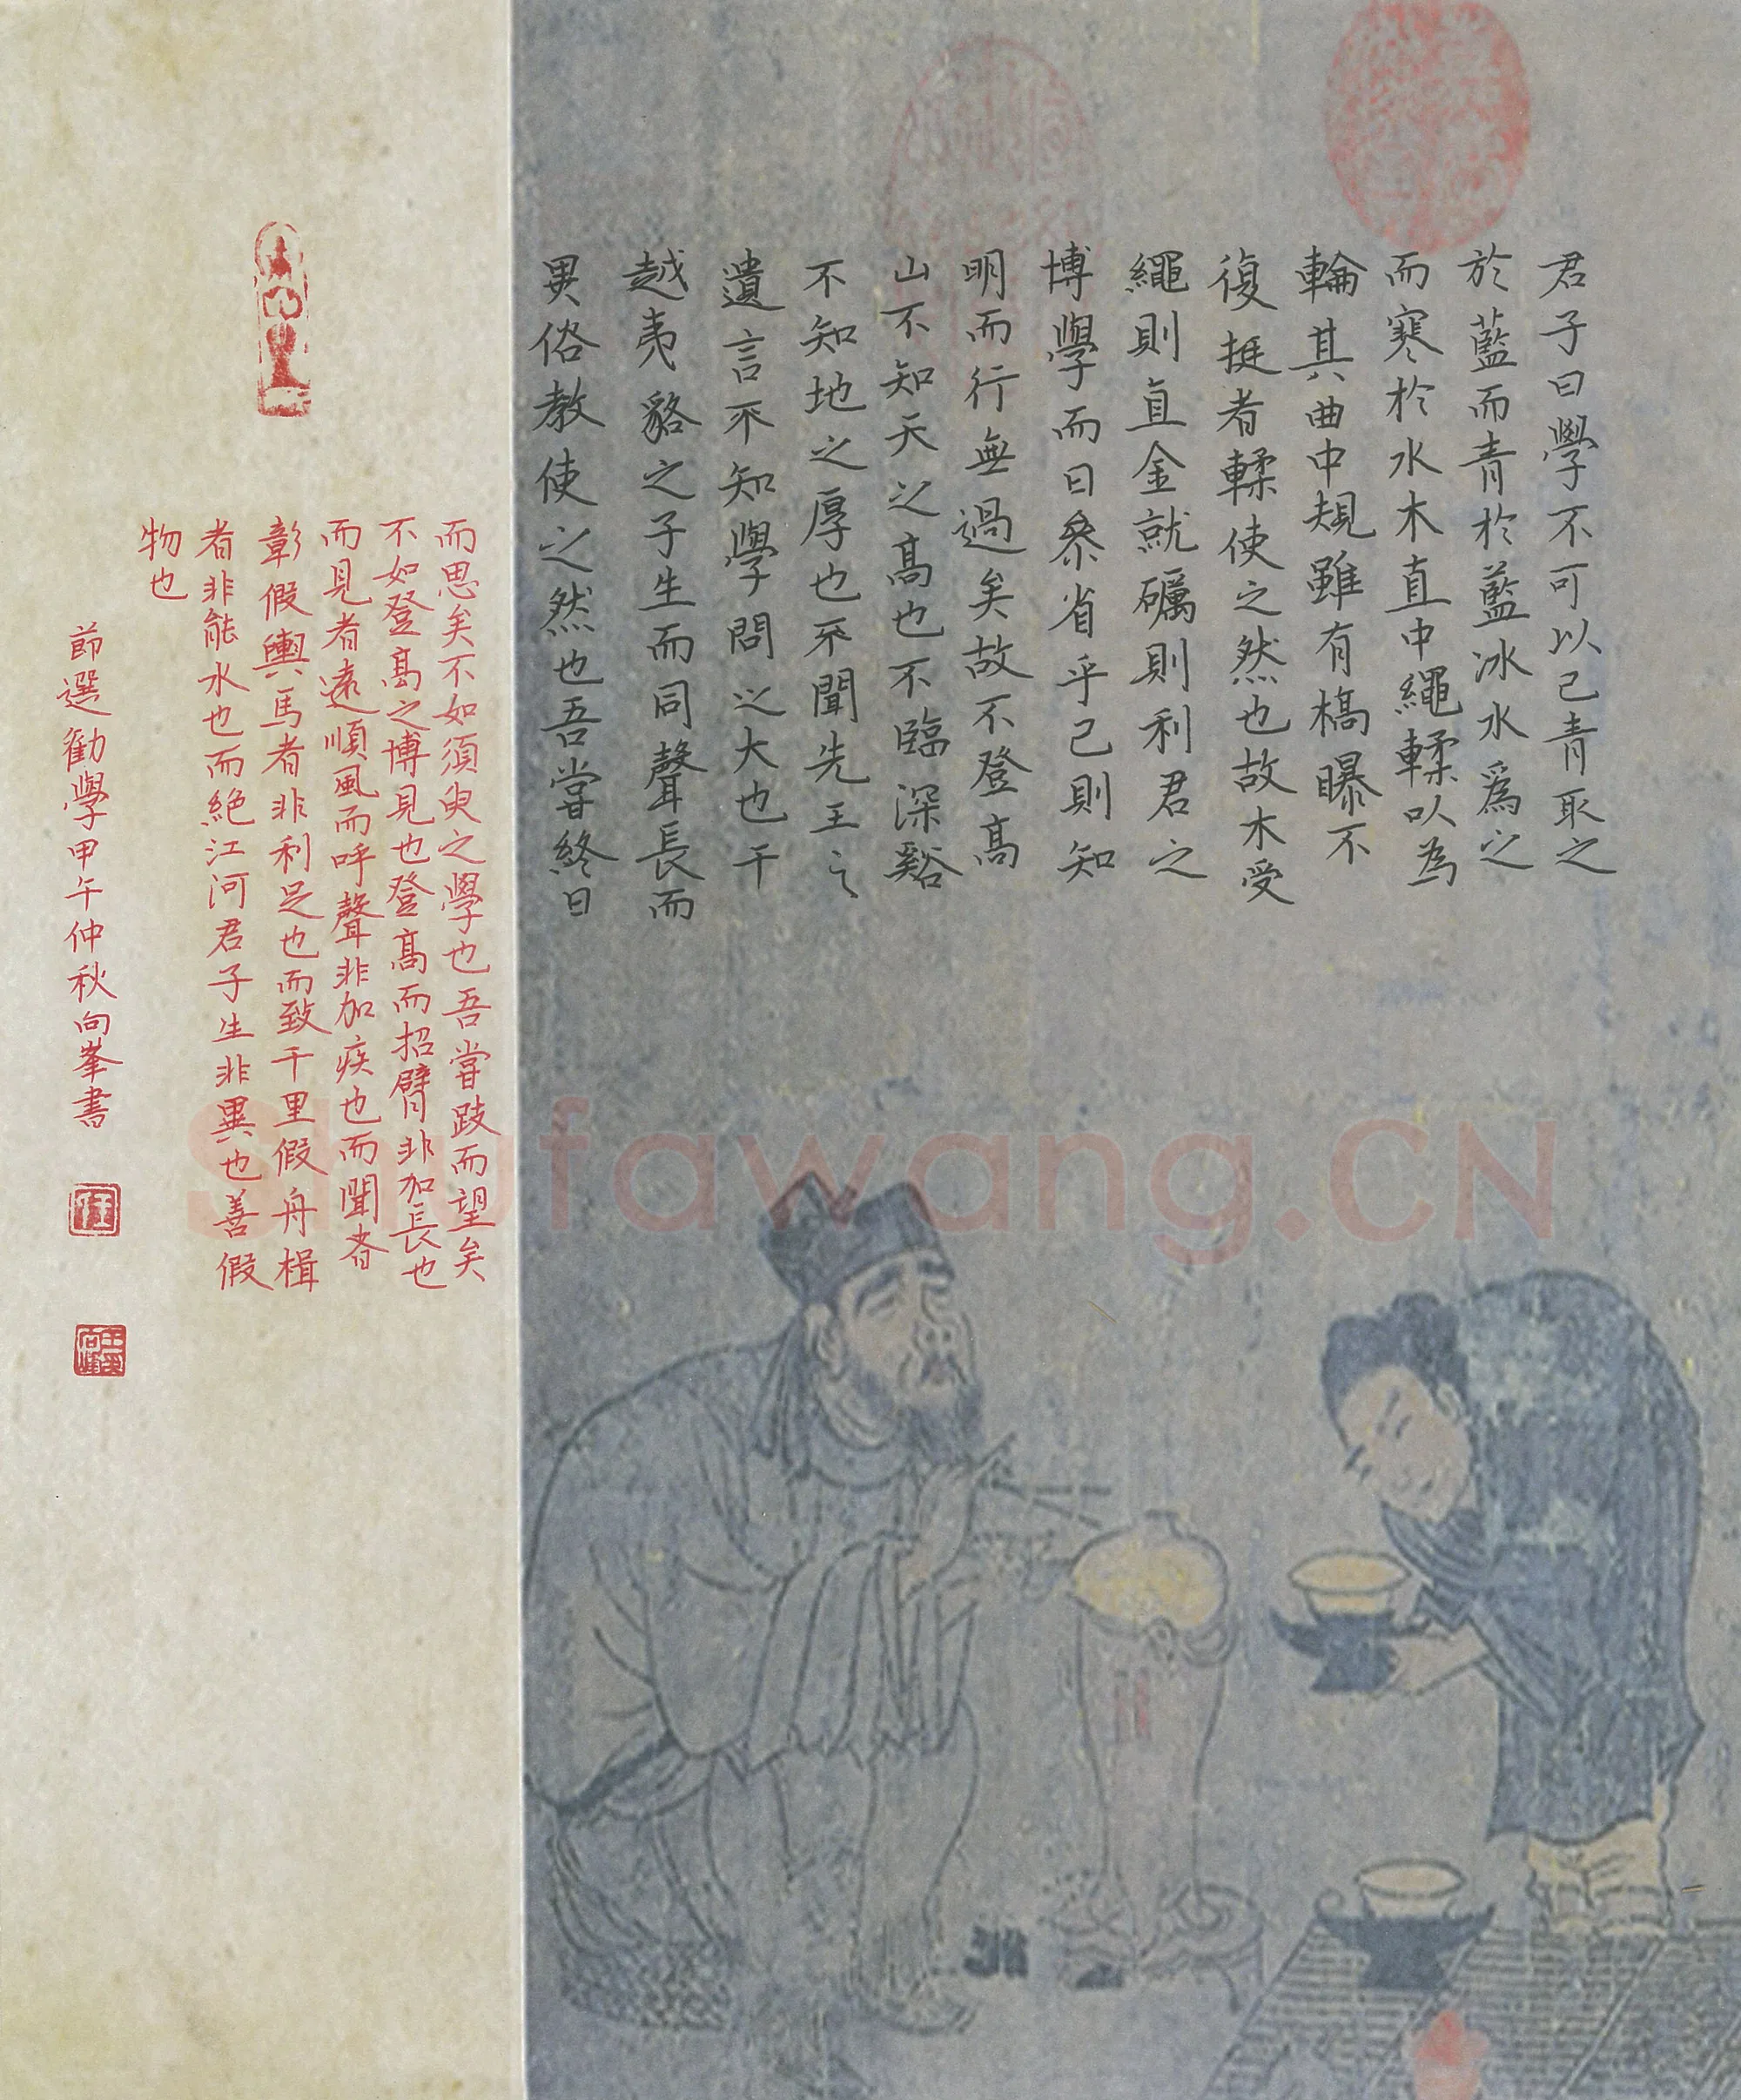 君子曰學不可以已青取之
於藍而青於藍冰水爲之
而寒於水木直中繩輮以為
輪其曲中規雖有槁曝不
復挺者輮使之然也故木受
繩則直金就礪則利君之
博學而日叅省乎己則知
明而行無過矣故不登高
山不知天之高也不臨深谿
不知地之厚也不聞先王之
遺言不知學問之大也干
越夷貉之子生而同聲長而
異俗教使之然也吾嘗終日
而思矣不如須臾之學也吾嘗跂而望矣
不如登高之博見也登高而招臂非加長也
而見者遠順風而呼聲非加疾也而聞者
彰假輿馬者非利足也而致千里假舟楫
者非能水也而絕江河君子生非異也善假
物也
節選勸學甲午仲秋向峯書
Shufawang.CN